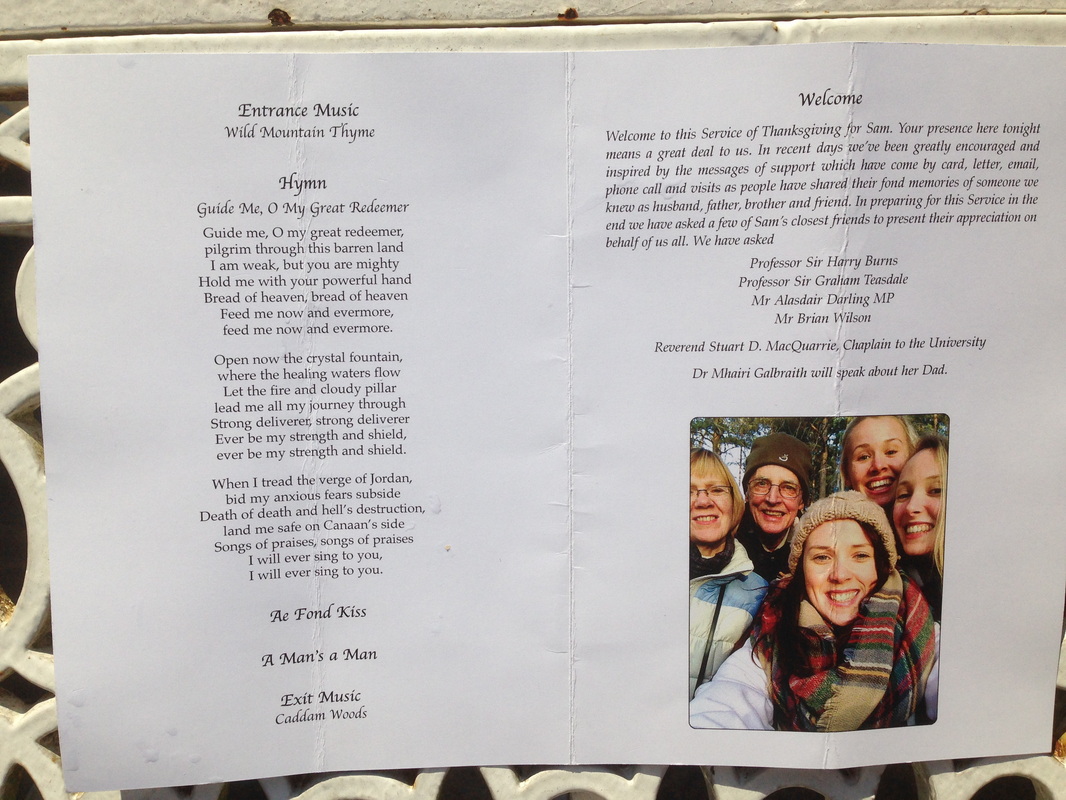 Entrance Music
Wild Mountain Thyme
Hymn
Guide Me, O My Great Redeemer
Guide me, O my great redeemer,
pilgrim through this barren land
I am weak, but you are mighty
Hold me with your powerful hand
Bread of heaven, bread of heaven
Feed me now and evermore,
feed me now and evermore.
Open now the crystal fountain,
where the healing waters flow
Let the fire and cloudy pillar
lead me all my journey through
Strong deliverer, strong deliverer
Ever be my strength and shield,
ever be my strength and shield.
When I tread the verge of Jordan,
bid my anxious fears subside
Death of death and hell's destruction,
land me safe on Canaan's side
Songs of praises, songs of praises
I will ever sing to you,
I will ever sing to you.
Ae Fond Kiss
A Man's a Man
Exit Music
Caddam Woods
Welcome
Welcome to this Service of Thanksgiving for Sam. Your presence here tonight
means a great deal to us. In recent days we've been greatly encouraged and
inspired by the messages of support which have come by card, letter, email,
phone call and visits as people have shared their fond memories of someone we
knew as husband, father, brother and friend. In preparing for this Service in the
end we have asked a few of Sam's closest friends to present their appreciation on
behalf of us all. We have asked
Professor Sir Harry Burns
Professor Sir Graham Teasdale
Mr Alasdair Darling MP
Mr Brian Wilson
Reverend Stuart D. MacQuarrie, Chaplain to the University
Dr Mhairi Galbraith will speak about her Dad.